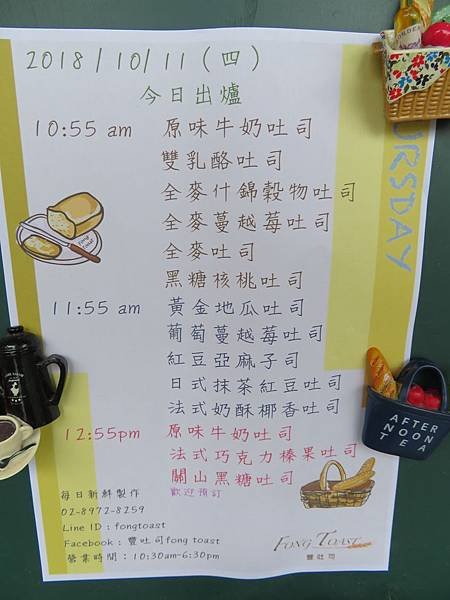 2018/10/11(四)
今日出爐
10:55 am 原味牛奶吐司
雙乳酪吐司
全麥什錦穀物吐司
全麥蔓越莓吐司
全麥吐司
黑糖核桃吐司
11:55 am 黃金地瓜吐司
葡萄蔓越莓吐司
紅豆亞麻子司
日式抹茶紅豆吐司
法式奶酥椰香吐司
12:55pm 原味牛奶吐司
法式巧克力榛果吐司
關山黑糖吐司
歡迎預訂
每日新鮮製作
02-8972-8259
Line ID：fongtoast
Facebook：豐吐司fong toast
營業時間：10:30am-6:30pm
FONG TOAST
豐吐司
URSDAY
AFTER
NOON
TEA
Fong
toast